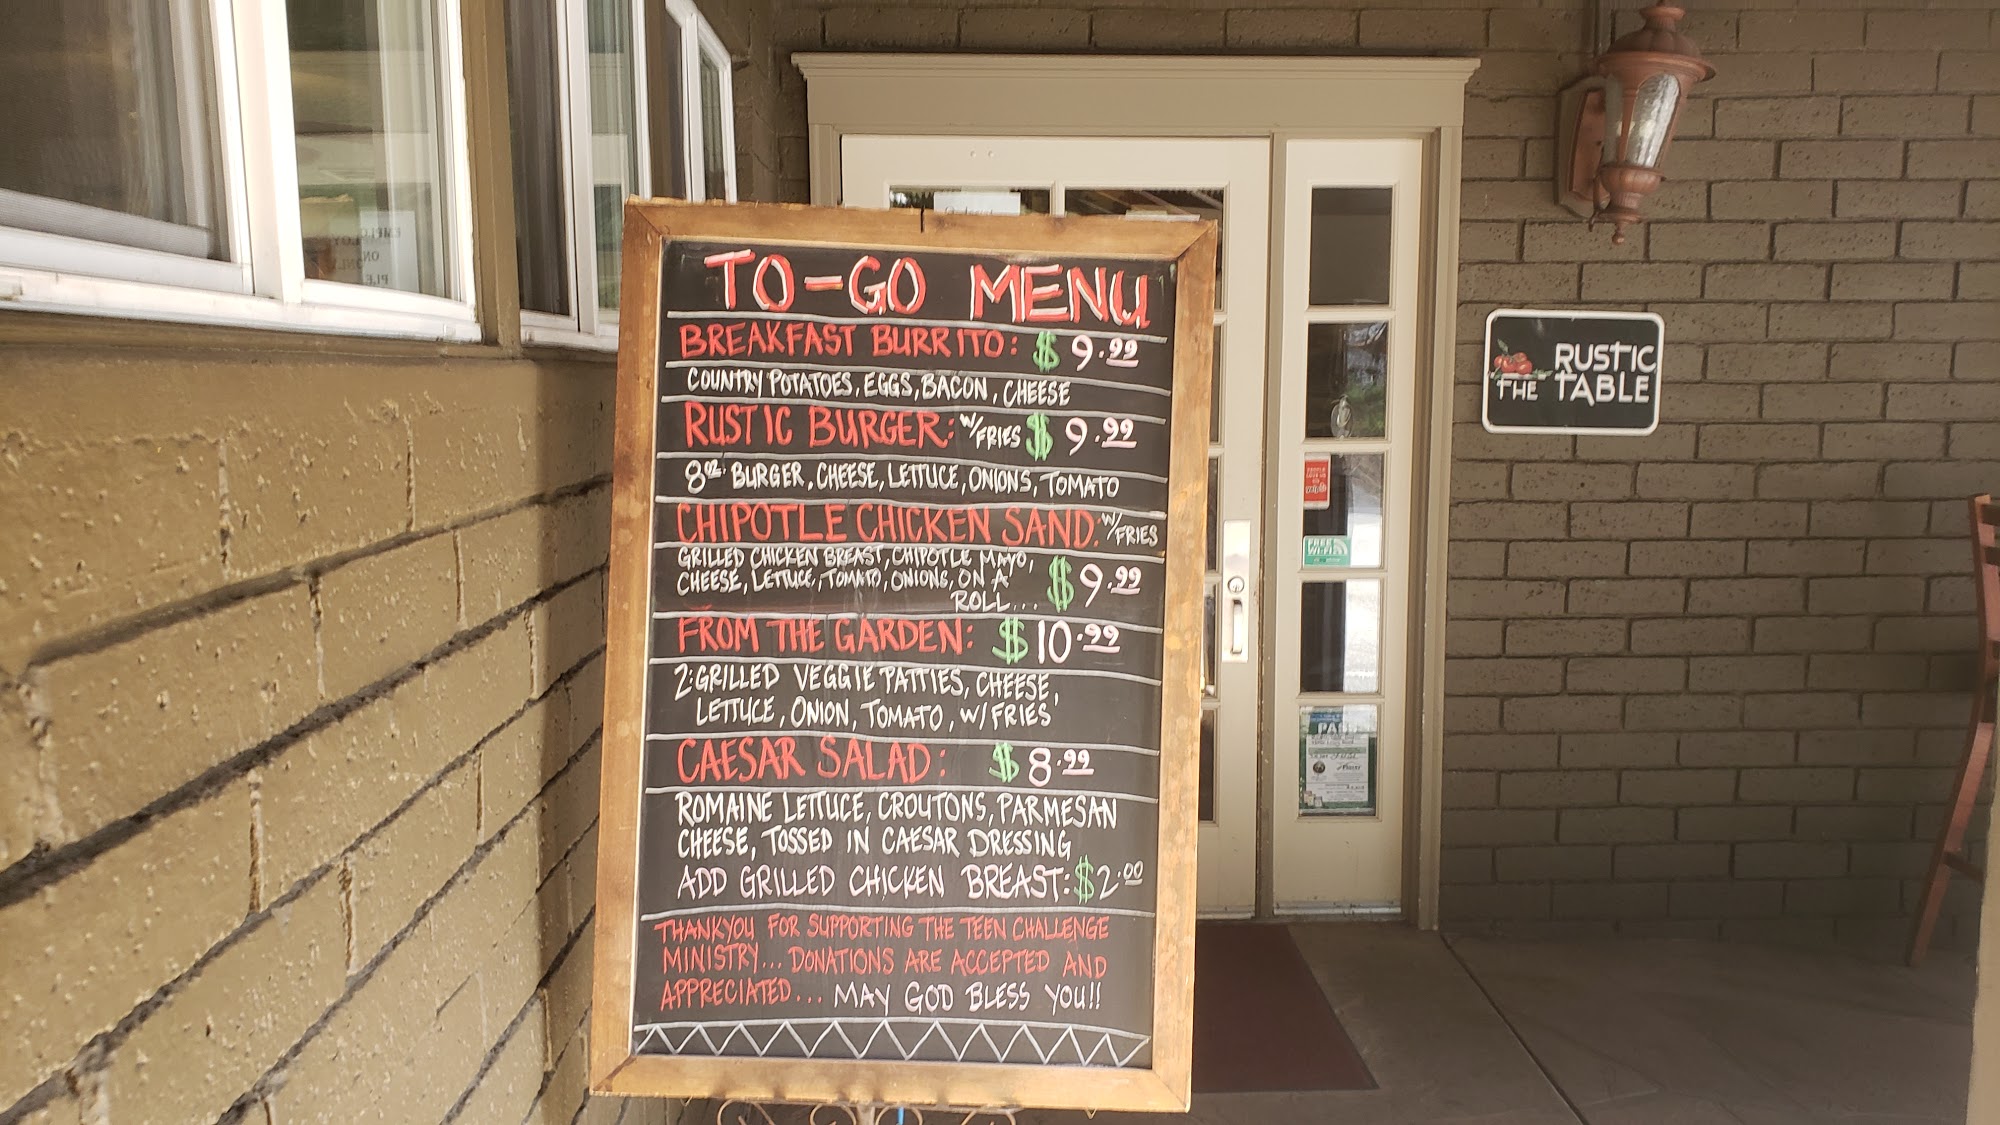 TO-GO MENU
BREAKFAST BURRITO: $9.99
COUNTRY POTATOES, EGGS, BACON, CHEESE
RUSTIC BURGER: W/FRIES $9.99
8oz. BURGER, CHEESE, LETTUCE, ONIONS, TOMATO
CHIPOTLE CHICKEN SAND: W/FRIES
GRILLED CHICKEN BREAST, CHIPOTLE MAYO,
CHEESE, LETTUCE, TOMATO, ONIONS, ON A
ROLL... $9.99
FROM THE GARDEN: $10.99
2:GRILLED VEGGIE PATTIES, CHEESE,
LETTUCE, ONION, TOMATO, W/FRIES
CAESAR SALAD: $8.99
ROMAINE LETTUCE, CROUTONS, PARMESAN
CHEESE, TOSSED IN CAESAR DRESSING
ADD GRILLED CHICKEN BREAST: $2.00
THANKYOU FOR SUPPORTING THE TEEN CHALLENGE
MINISTRY... DONATIONS ARE ACCEPTED AND
APPRECIATED... MAY GOD BLESS YOU!!
RUSTIC
THE TABLE
FREE
WI-FI